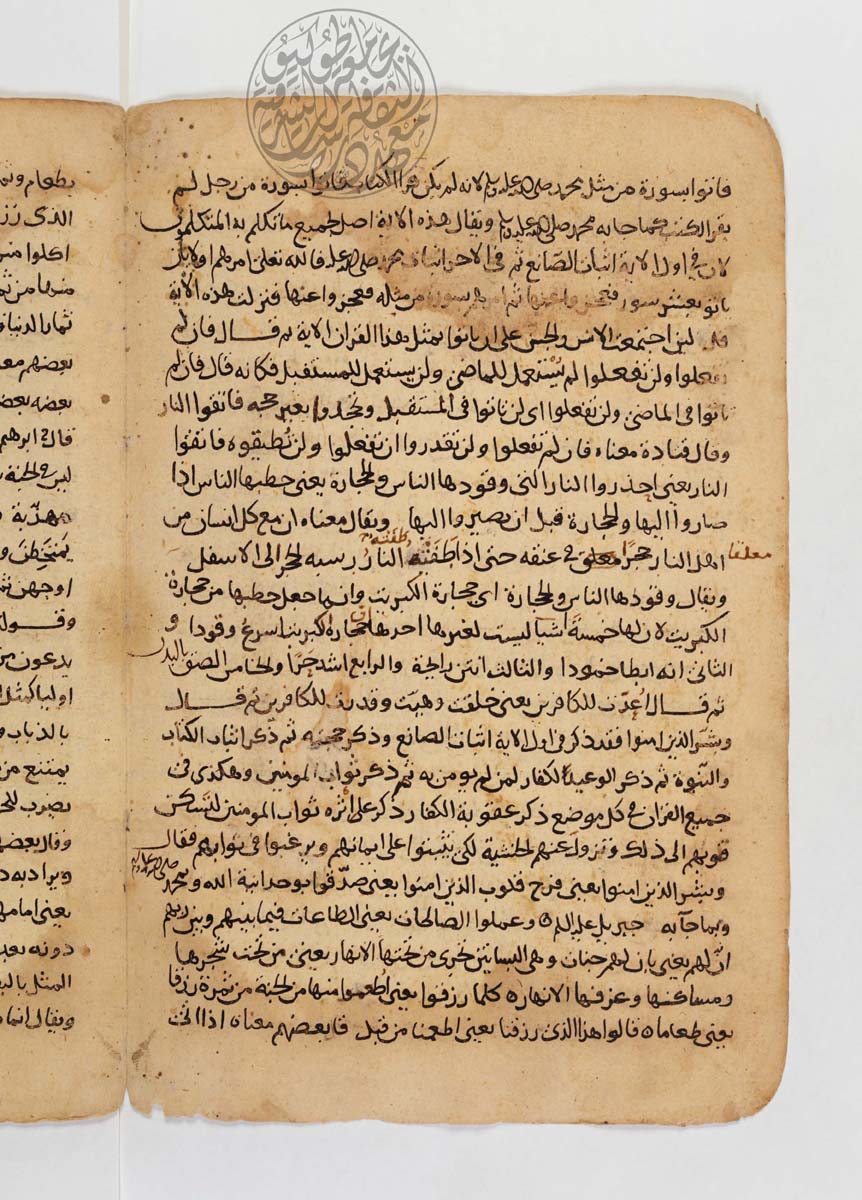 فاتوا بسورة من مثل محمد صلى الله عليه وسلم لانه لم يكن قرا الكتاب فاتوا بسورة من رجل لم
يقر الكتب كما جا به محمد صلى الله عليه وسلم ويقال هذه الاية اصل لجميع ما تكلم به المتكلمون
لان في اول الاية اثبات الصانع ثم في الاخر اثبات محمد صلى الله عليه فالله تعالى امرهم اولا بان
ياتو بعشر سور فعجزوا عنها ثم امرهم بسورة من مثله فعجزوا عنها فنزلت هذه الاية
قل لين اجتمعت الانس والجن على ان ياتوا بمثل هذا القران الاية ثم قال فان لم
تفعلوا ولن تفعلوا لم يستعمل للماضي ولن يستعمل للمستقبل فكانه قال فان لم
تاتوا في الماضي ولن تفعلوا اي لن تاتوا في المستقبل وتجحدوا بغير حجه فاتقوا النار
وقال قتادة معناه فان لم تفعلوا ولن تقدروا ان تفعلوا ولن تطيقوه فاتقوا
النار يعني احذروا النار التي وقودها الناس والحجارة يعني حطبها الناس اذا
صاروا اليها والحجارة قبل ان يصيروا اليها ويقال معناه ان مع كل انسان من
اهل النار حجرا معلق في عنقه حتى اذا طفئت النار رسبه الحجر الى الاسفل
معلقا
طفئت
ويقال وقودها الناس والحجارة اي حجارة الكبريت وانما جعل حطبها من حجارة
الكبريت لان لها خمسة اشيا ليست لغيرها احدها ان حجارة الكبريت اسرع وقودا و
الثاني انه ابطا خمودا والثالث انتن رايحة والرابع اشد حرا والخامس الصق بالبدن
ثم قال اعدت للكافرين يعني خلقت وهييت وقدرت للكافرين ثم قال
وبشر الذين امنوا فقد ذكر في اول الاية اثبات الصانع وذكر حججه ثم ذكر اثبات الكتاب
والنبوة ثم ذكر الوعيد الكفار لمن لم يومن به ثم ذكر ثواب المومنين وهكذى في
جميع القران في كل موضع ذكر عقوبة الكفار ذكر على اثره ثواب المومنين لتسكن
قلوبهم الى ذلك وتزول عنهم الخشية لكي يثبتوا على ايمانهم ويرغبوا في ثوابهم فقال
وبشر الذين امنوا يعني فرح قلوب الذين امنوا يعني صدقوا بوحدانية الله وبمحمد
صلى الله عليه وسلم
وبما جآ به جبريل عليه السلم وعملوا الصالحات يعني الطاعات فيما بينهم وبين ربهم
ان لهم يعني بان لهم جنات وهي البساتين تجري من تحتها الانهار يعني من تحت شجرها
ومساكنها وغرفها الانهار كلما رزقوا يعني اطعموا منها من الجنة من ثمرة رزقا
يعني طعاما قالوا هذا الذي رزقنا يعني اطعمنا من قبل قا بعضهم معناه اذا اتي